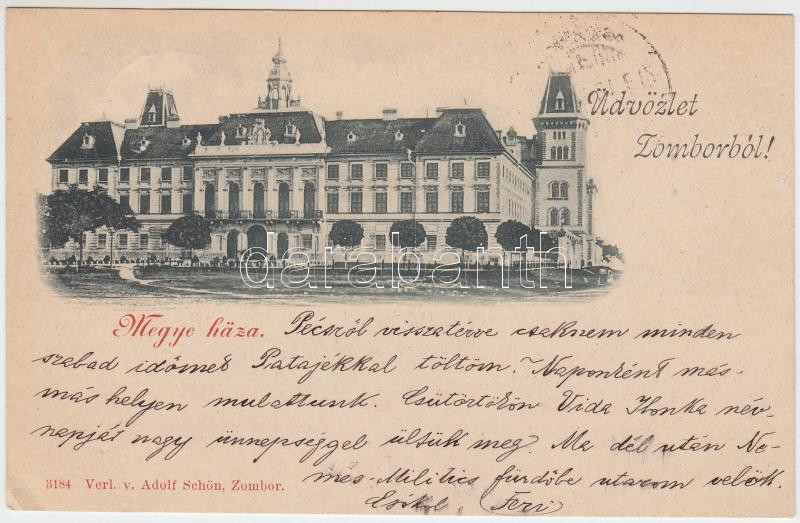 Üdvözlet
Zomborból!
darabanth
Megye háza. Pécsről visszatérve csaknem minden
szabad időmet Patajékkal töltöm. Naponként más-
más helyen mulattunk. Csütörtökön Vida Ilonka név-
napját nagy ünnepséggel ültük meg. Ma dél után Ne-
mes-Militics fürdőbe utazom velök.
Csókol Feri
3184 Verl. v. Adolf Schön, Zombor.